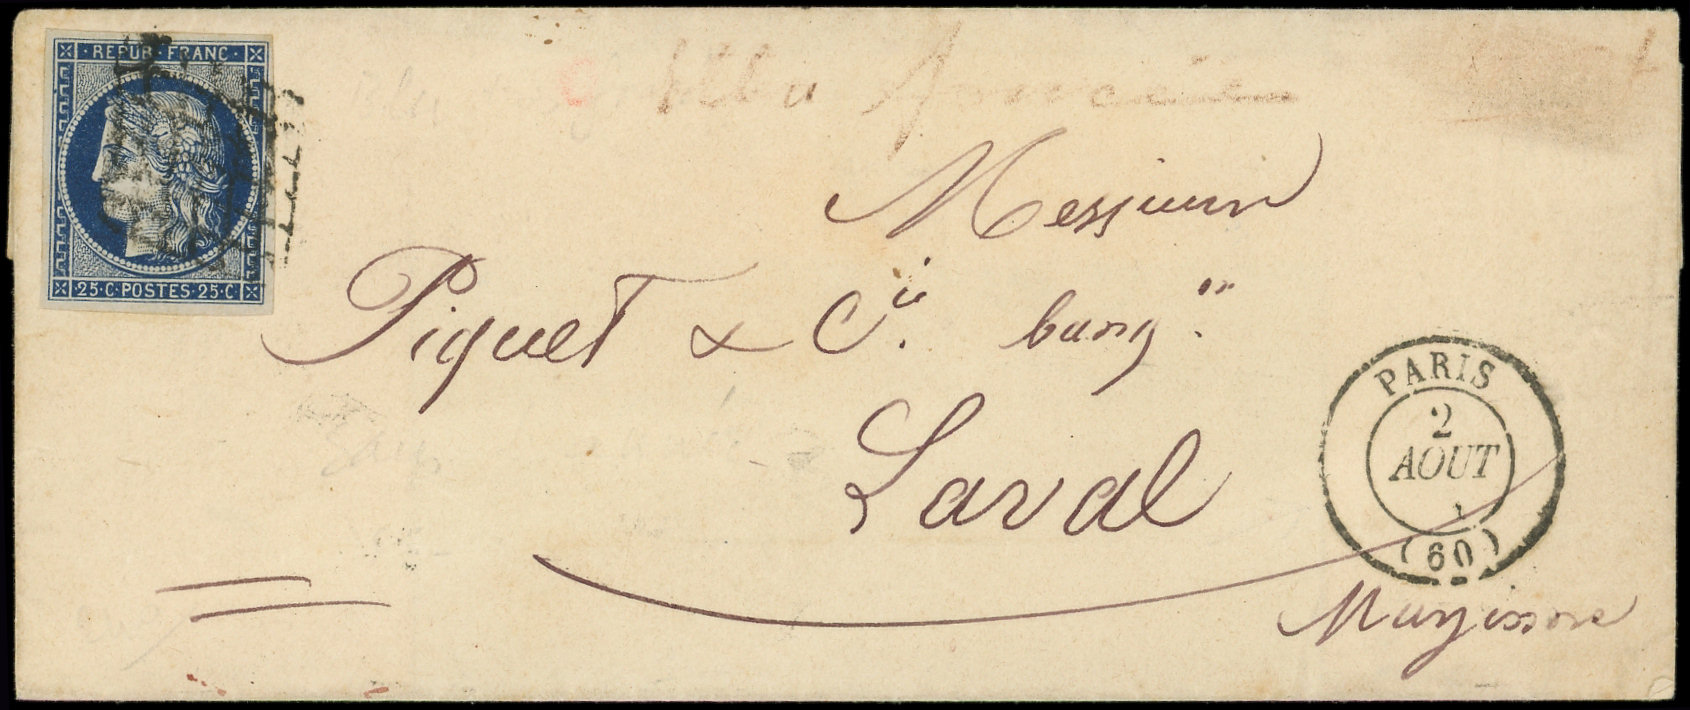 REPUB · FRANC ·
25 · C · POSTES · 25 · C
Messieurs
Piquet & Cie. banq.rs
Laval
PARIS
2
AOUT
(60)
Mayenne